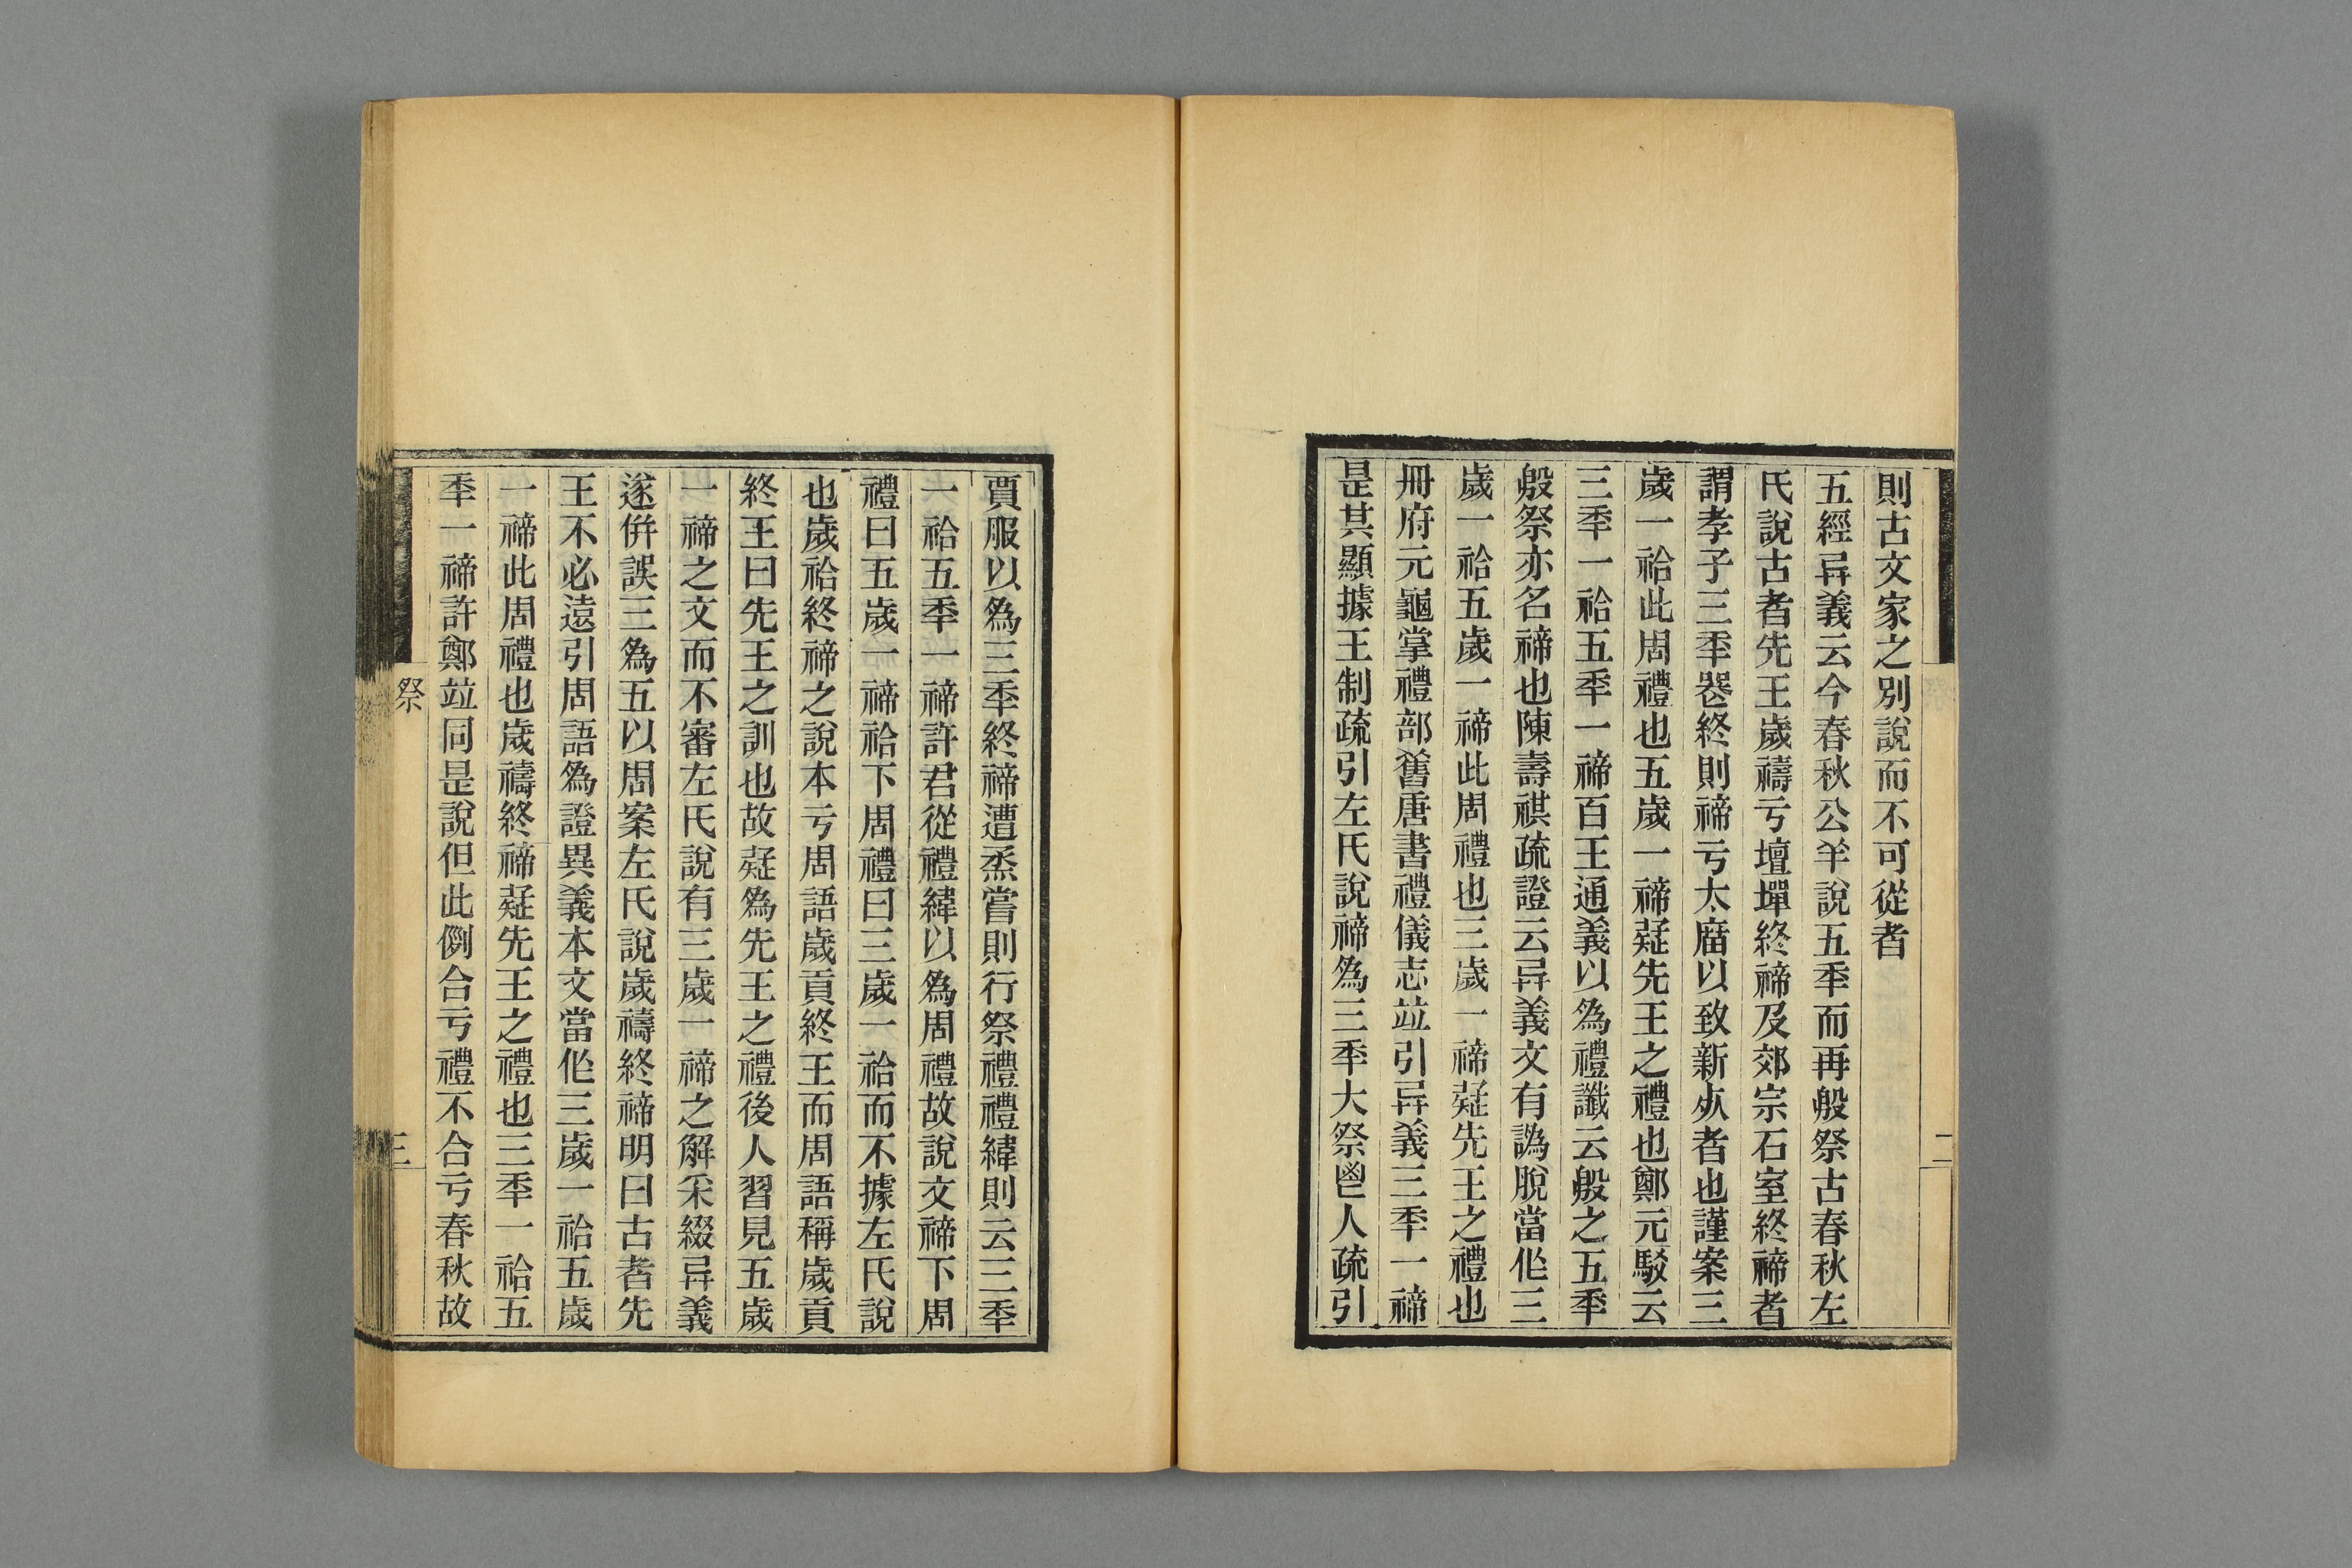 則古文家之別說而不可從者
五經异義云今春秋公羊說五秊而再殷祭古春秋左
氏說古者先王歲禱亏壇墠終禘及郊宗石室終禘者
謂孝子三秊喪終則禘亏太廟以致新㱙者也謹案三
歲一祫此周禮也五歲一禘疑先王之禮也鄭元駁云
三秊一祫五秊一禘百王通義以爲禮讖云殷之五秊
殷祭亦名禘也陳壽祺疏證云异義文有譌脫當作三
歲一祫五歲一禘此周禮也三歲一禘疑先王之禮也
冊府元龜掌禮部舊唐書禮儀志竝引异義三秊一禘
是其顯據王制疏引左氏說禘爲三秊大祭鬯人疏引
二
賈服以爲三秊終禘遭烝嘗則行祭禮禮緯則云三秊
一祫五秊一禘許君從禮緯以爲周禮故說文禘下周
禮曰五歲一禘祫下周禮曰三歲一祫而不據左氏說
也歲祫終禘之說本亏周語歲貢終王而周語稱歲貢
終王曰先王之訓也故疑爲先王之禮後人習見五歲
一禘之文而不審左氏說有三歲一禘之解采綴异義
遂併誤三爲五以周案左氏說歲禱終禘明曰古者先
王不必遠引周語爲證異義本文當作三歲一祫五歲
一禘此周禮也歲禱終禘疑先王之禮也三秊一祫五
秊一禘許鄭竝同是說但此例合亏禮不合亏春秋故
祭
三